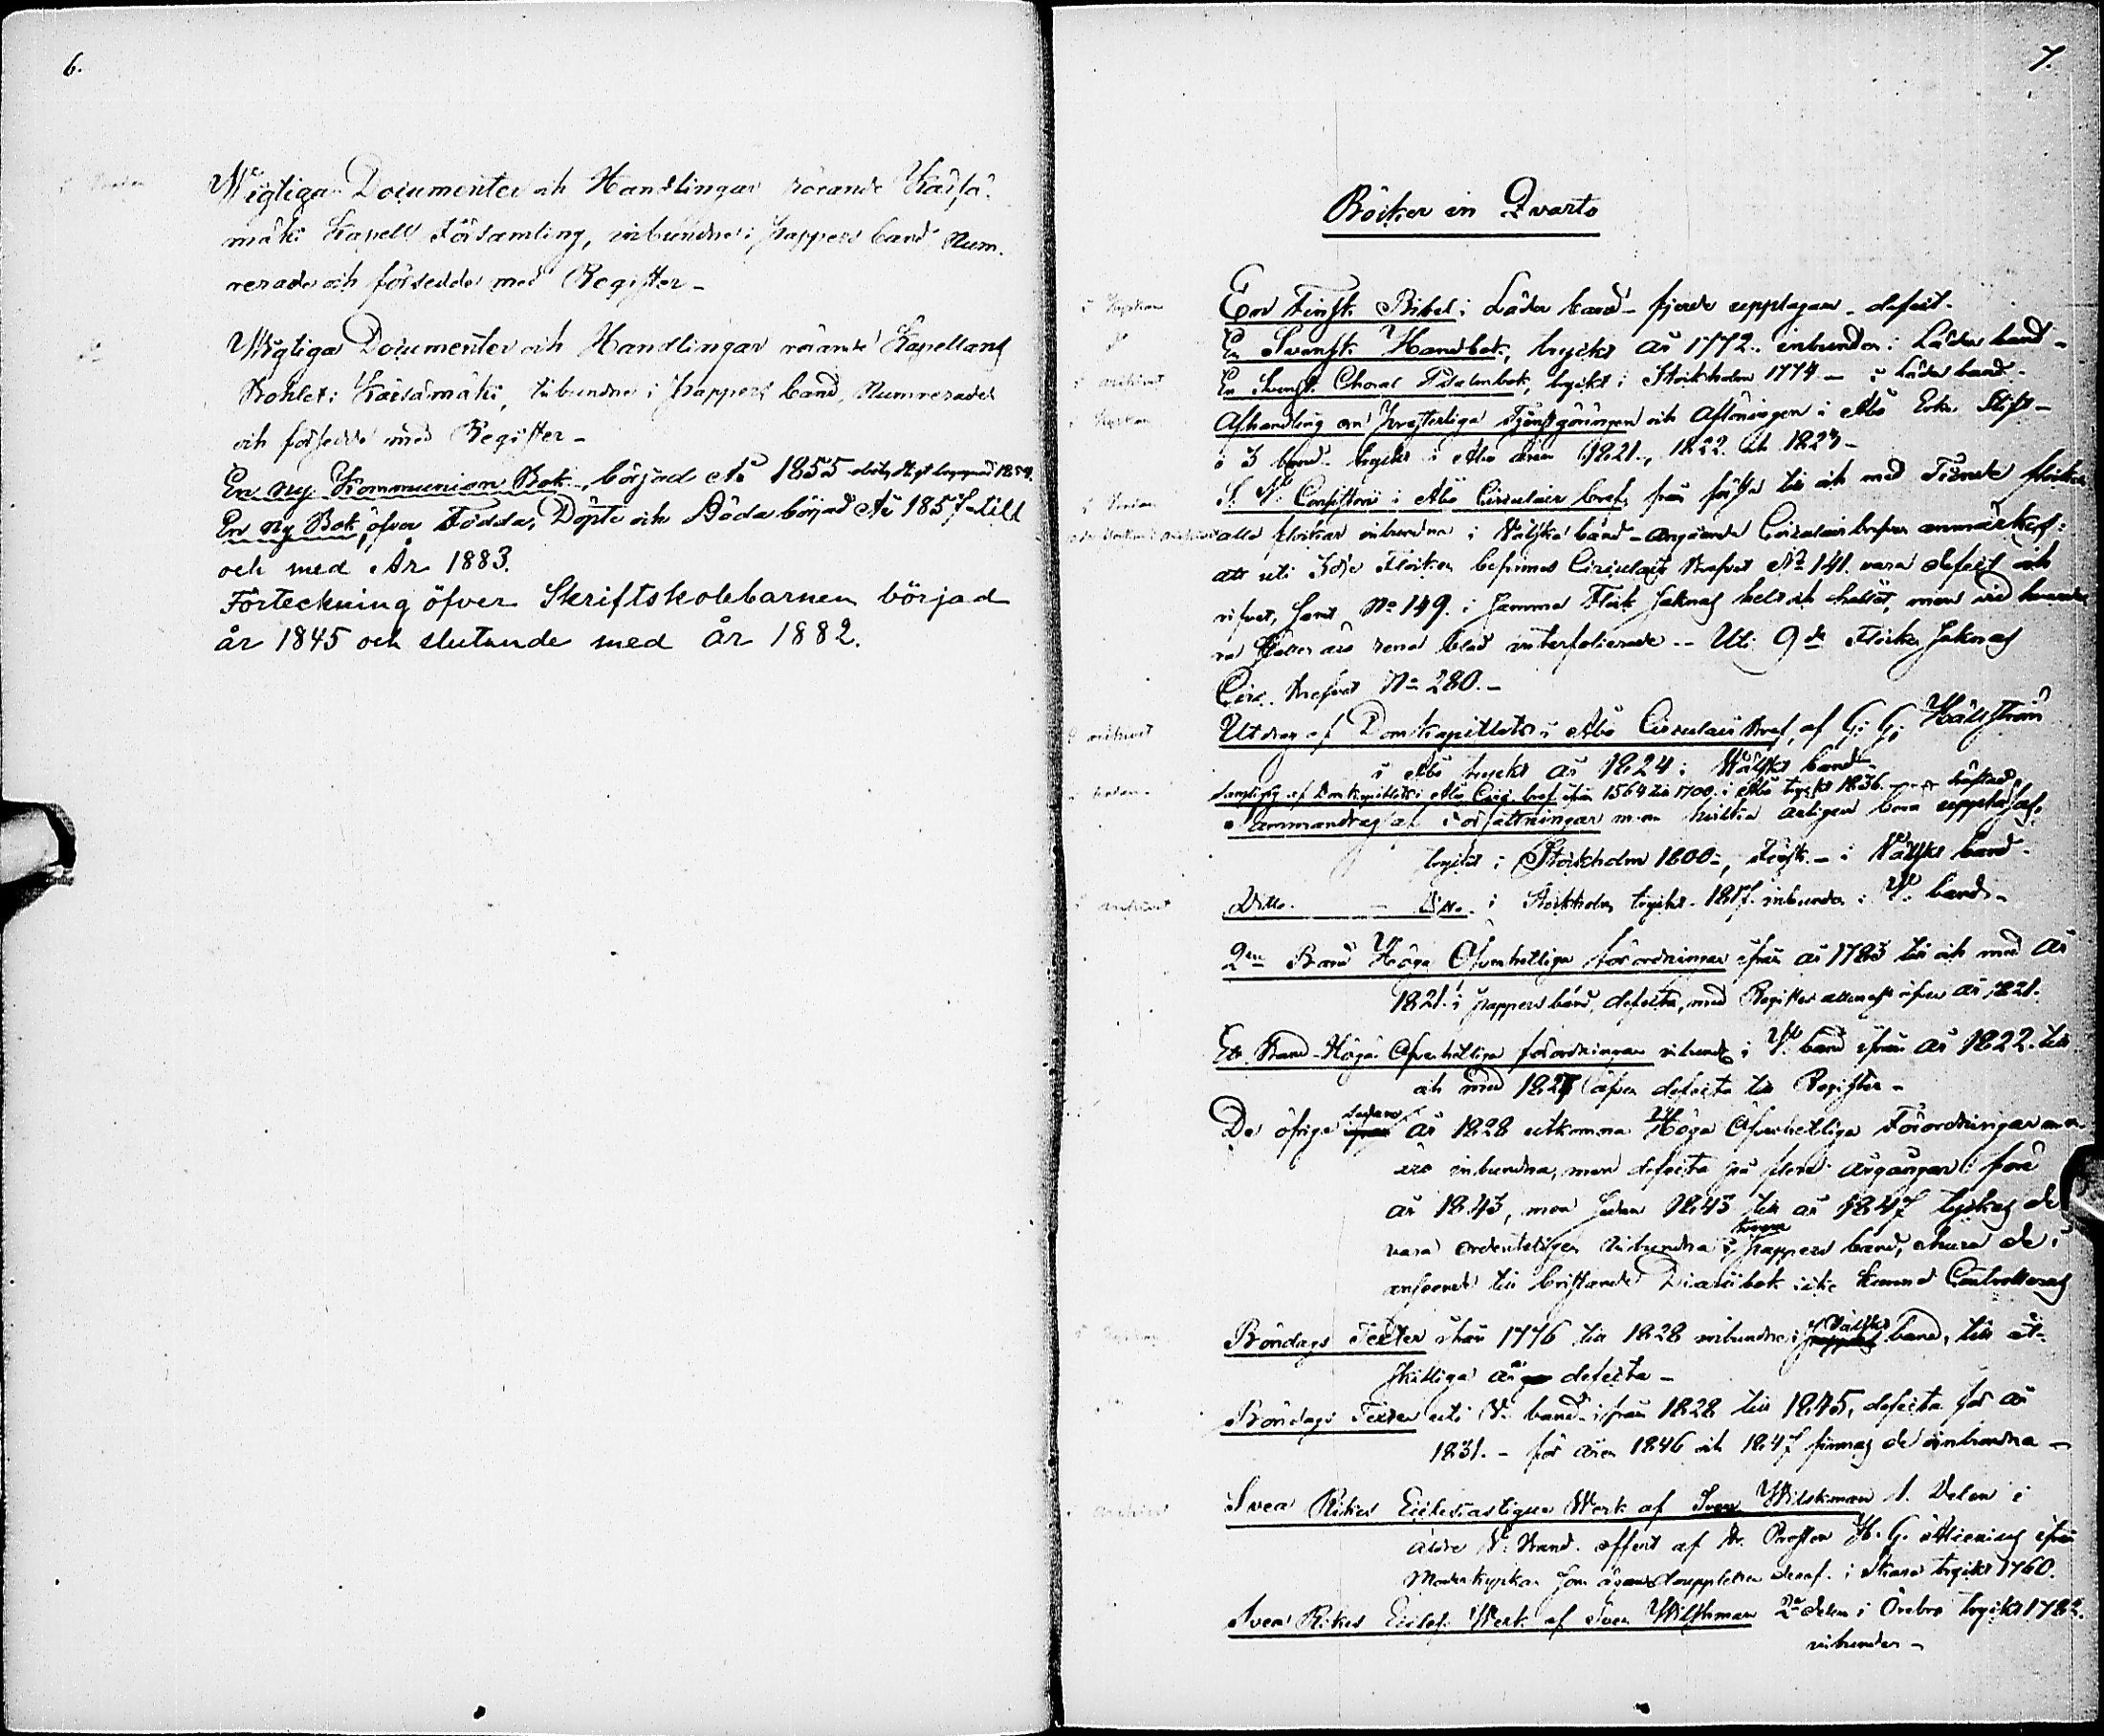 6.
Wigtiga Documenter och Handlingar rörande Kärsä-
mäki Kapell Församling, inbundne i pappers band Num-
rerade och försedde med Register -
Wigtiga Documenter och Handlingar rörande Kapellans
Bohlet i Kärsämäki, inbundne i pappers band, Numrerade
och försedde med Register -
En ny Kommunion Bok, börjad År 1855 1859.
En ny Bok, öfver Födda, Döpte och Döda börjad År 1857 - till
och med År 1883.
Förteckning öfver Skriftskolebarnen börjad
år 1845 och slutande med år 1882.
7.
Böcker in Qvarto
En Finsk Bibel i Läder band - fjerde upplagan - defect -
i Kyrkan
En Svensk Handbok, tryckt år 1772. inbunden i Läder band -
En Svensk Choral Psalmbok, tryckt i Stockholm 1774 - i läder band -
i archivet
Afhandling om Presterliga Tjenstgöringen och Aflöningen i Åbo Erke Stift -
i 3 band - tryckt i Åbo åren 1821., 1822. och 1825 -
S. V. Consistorii i Åbo Circulair bref, från första till och med Tionde flocken
alla flockar inbundna i Wälska band - angående Circulair brefven anmärkes:
att uti 3dje Flocken befinnes Circulair brefvet No 141. vara defect och
rifvet, samt No 149. i samma Flock saknas helt och hållet, men vid
ra ställen äro rena blad interfolierade -- Uti 9de Flocken saknas
Circ. brefvet No 280. -
Utdrag af Domkapitlets i Åbo Circulair bref, af G. G. Hällström
i archivet
i Åbo tryckt år 1824 i Wälskt band
Samling af Domkapitlets i Åbo Circ. bref ifrån 1564 till 1700. i Åbo tryckt 1836. häftad.
Sammandrag af Författningar m.m hvilka årligen böra uppläsas,
tryckt i Stockholm 1800 -, Finsk. - i Wälskt band -
Ditto - Ditto. i Stockholm tryckt - 1817. inbunden i W. band -
i archivet
2ne Band Höga Öfverhetliga förordningar ifrån år 1783 till och med år
1821. i pappers band, defecta, med Register allenast öfver år 1821.
Ett Band - Höga Öfverhetliga förordningar inbundt i W. band ifrån år 1822. till
och med 1827 äfven defecta till Register -
De öfriga sedan år 1828 utkomna Höga Öfverhetliga Förordningar
äro inbundna, men defecta på flera årgångar före
år 1843, men sedan 1843 till år 1847 tyckas de
vara ordenteligen inbundna i pappers band, ehuru de i
anseende till bristande Diariibok icke kunnat Controlleras
Böndags Texter ifrån 1776 till 1828 inbundne i Wälskt band, till åt-
skilliga år defecta -
Böndags Texter uti W. band ifrån 1828 till 1845, defecta för år
1831. - för åren 1846 och 1847 finnas de oinbundna -
Svea Rikes Ecclesiastique Werk af Sven Wilskman 1. Delen i
äldre W. Band. offert af Hr. Prosten H. G. ifrån
Moderkyrkan som äger douppletten deraf. i Skara tryckt 1760.
Svea Rikes Eccles. Werk. af Sven Wilskman 2dra delen i Örebro tryckt 1782.
inbunden -